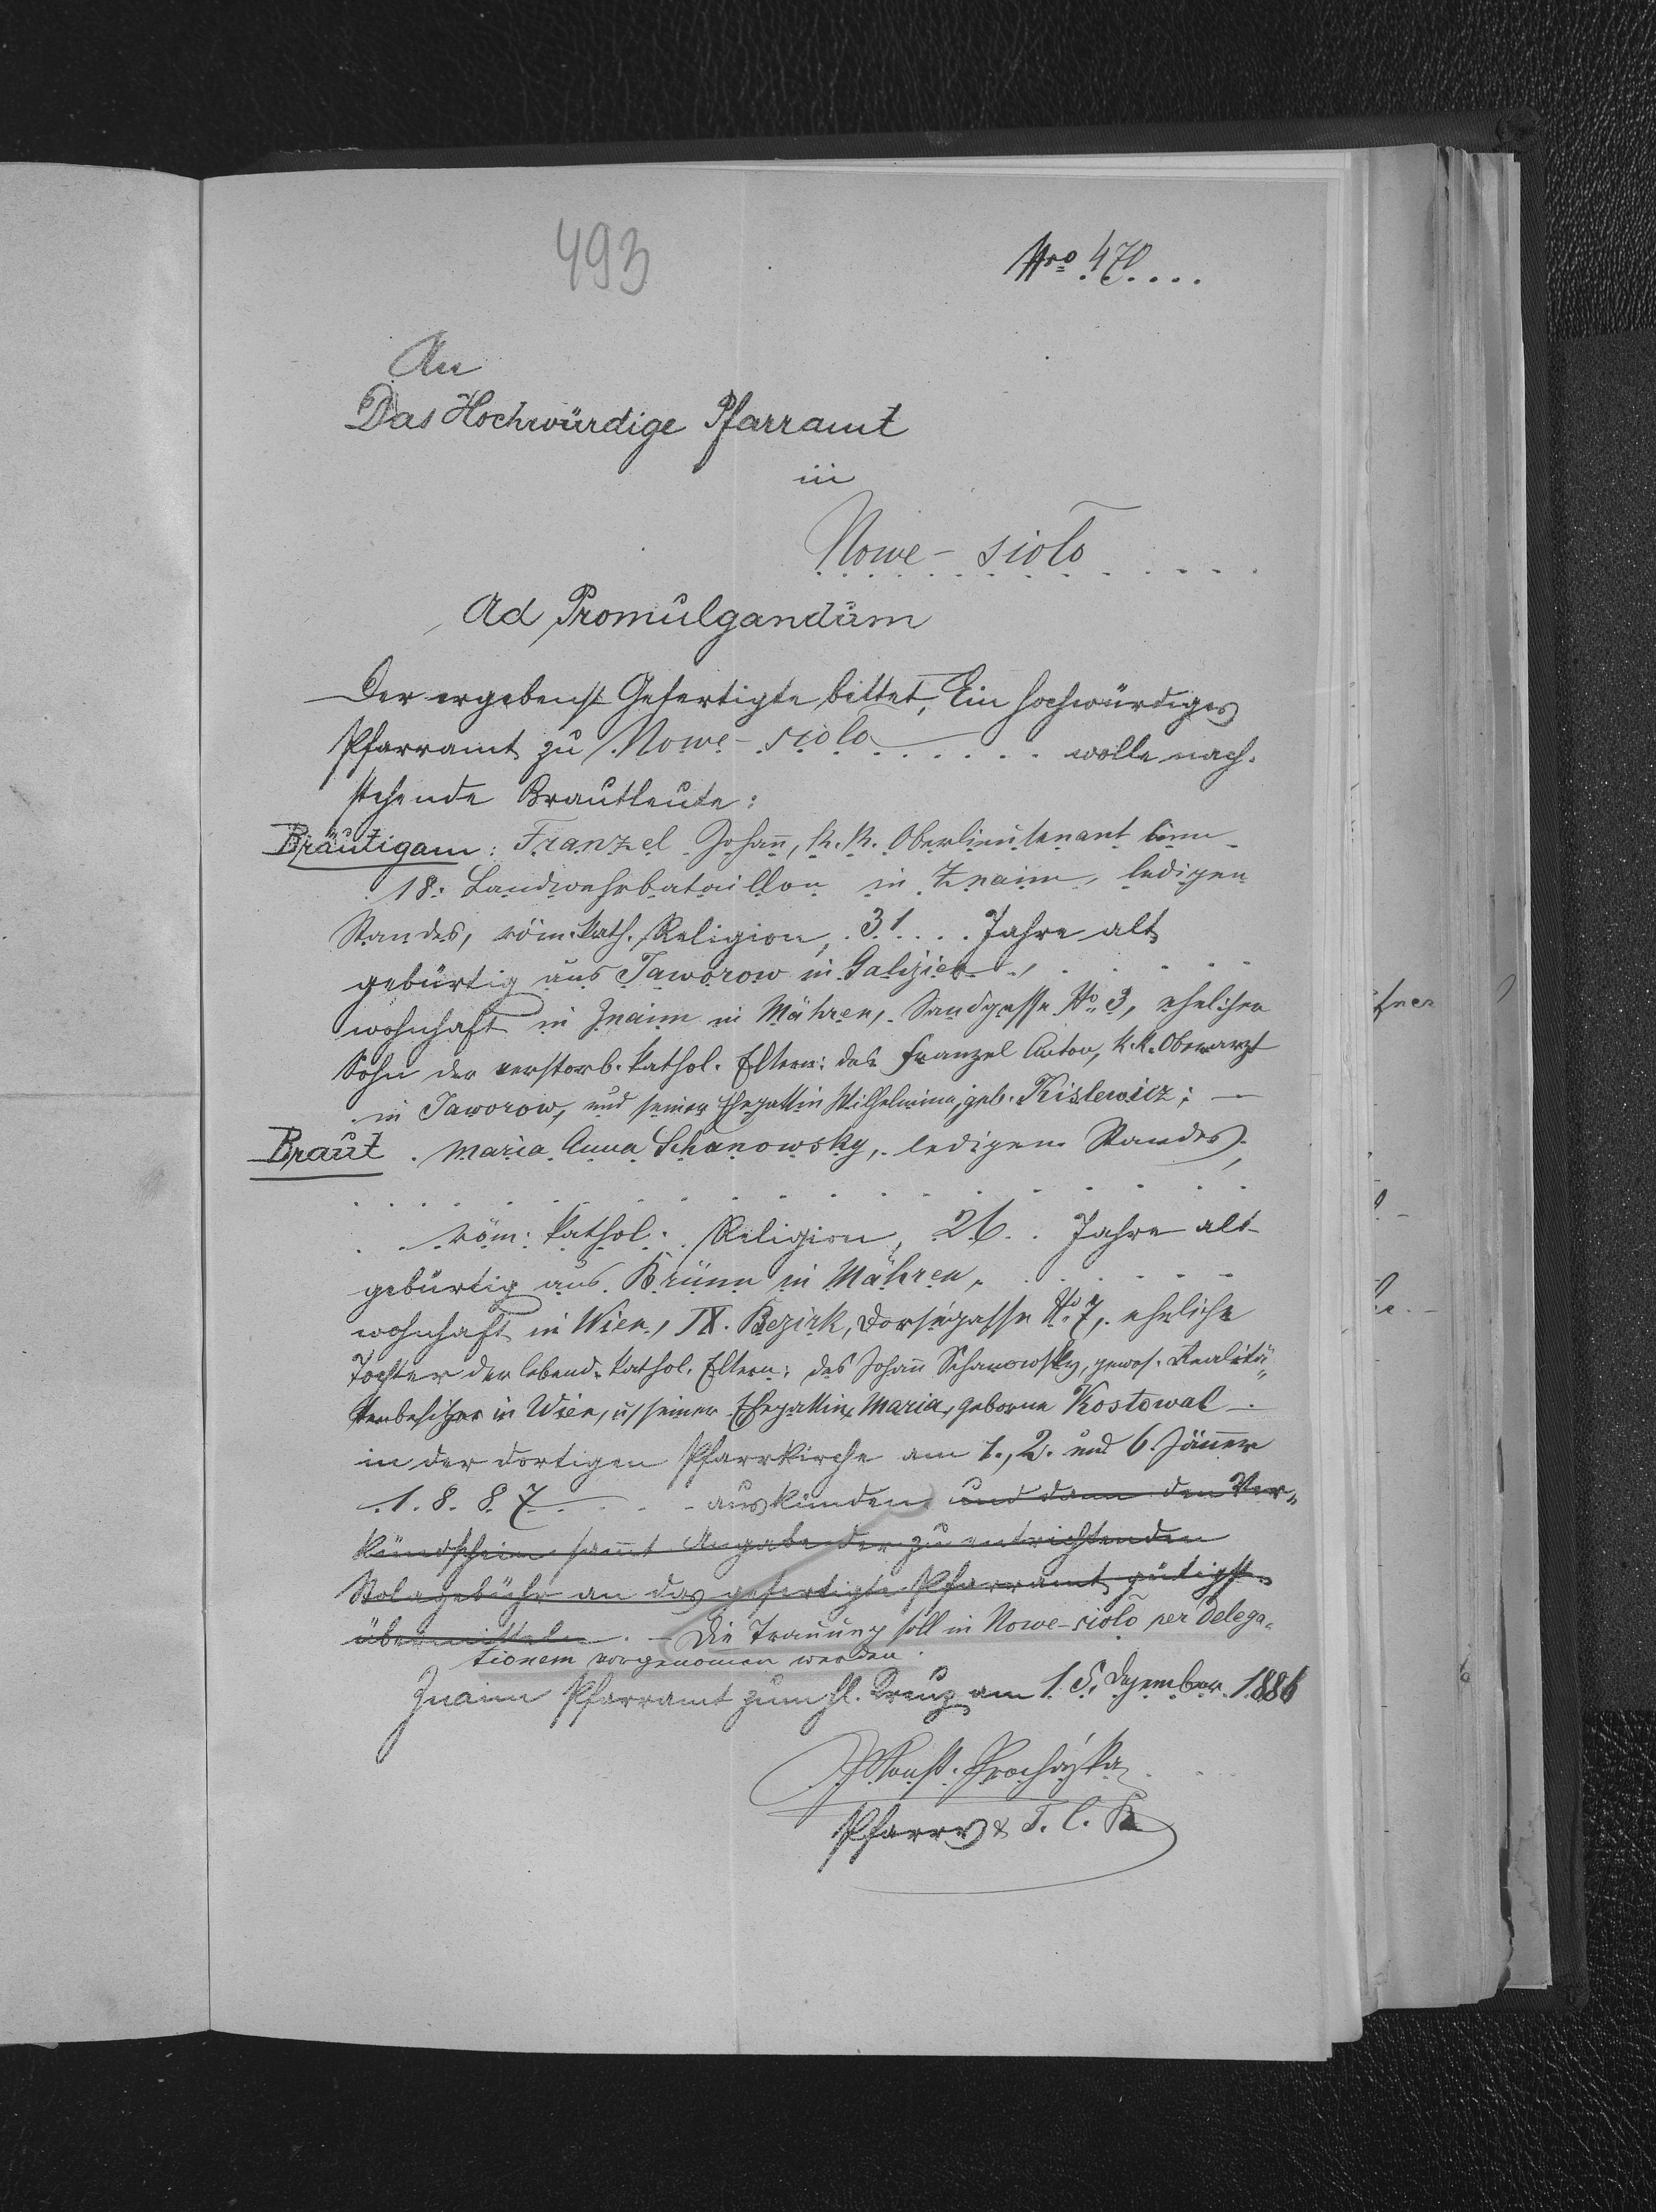 493
Nro 470....
An
Das Hochwürdige Pfarramt
in
Nowe - sioło
Ad Promulgandum
Der ergebenst Gefertigte bittet, Ein hochwürdiges
Pfarramt zu Nowe - sioło wolle nach-
stehende Brautleute:
Bräutigam: Franzel Johan̄, k. k. Oberlieutenant beim
18. Landwehrbataillon in Znaim, ledigen
Standes, röm. kath. Religion, 31 Jahre alt
gebürtig aus Jaworow in Galizien,
wohnhaft in Znaim in Mähren, Sandgasse No 3, ehelicher
Sohn der verstorb. kathol. Eltern: des Franzel Anton, k. k. Oberarzt
in Jaworow, und seiner Ehegattin Wilhelmine, geb. Kislewicz; —
Braut. Maria Anna Schanowsky, ledigen Standes,
röm. kathol. Religion, 26 Jahre alt
gebürtig aus Brünn in Mähren,
wohnhaft in Wien, IX. Bezirk, No 7, eheliche
Tochter der lebend. kathol. Eltern: des Johan̄ Schanowsky, gewes. Realitä-
tenbesitzer in Wien, u. seiner Ehegattin Maria, geborne Kostowal —
in der dortigen Pfarrkirche am 1., 2. und 6. Jän̄er
1. 8. 8. 7 auskünden und dann den Ver-
kündschein sam̄t Angabe der zu entrichtenden
Stolagebühr an das gefertigte Pfarramt gütigst
übermitteln. — Die Trauung soll in Nowe-sioło per delega-
tionem vorgenomen werden.
Znaim Pfarramt zum hl. Kreuz am 15. Dezember 1886
Procházka
Pfarrer